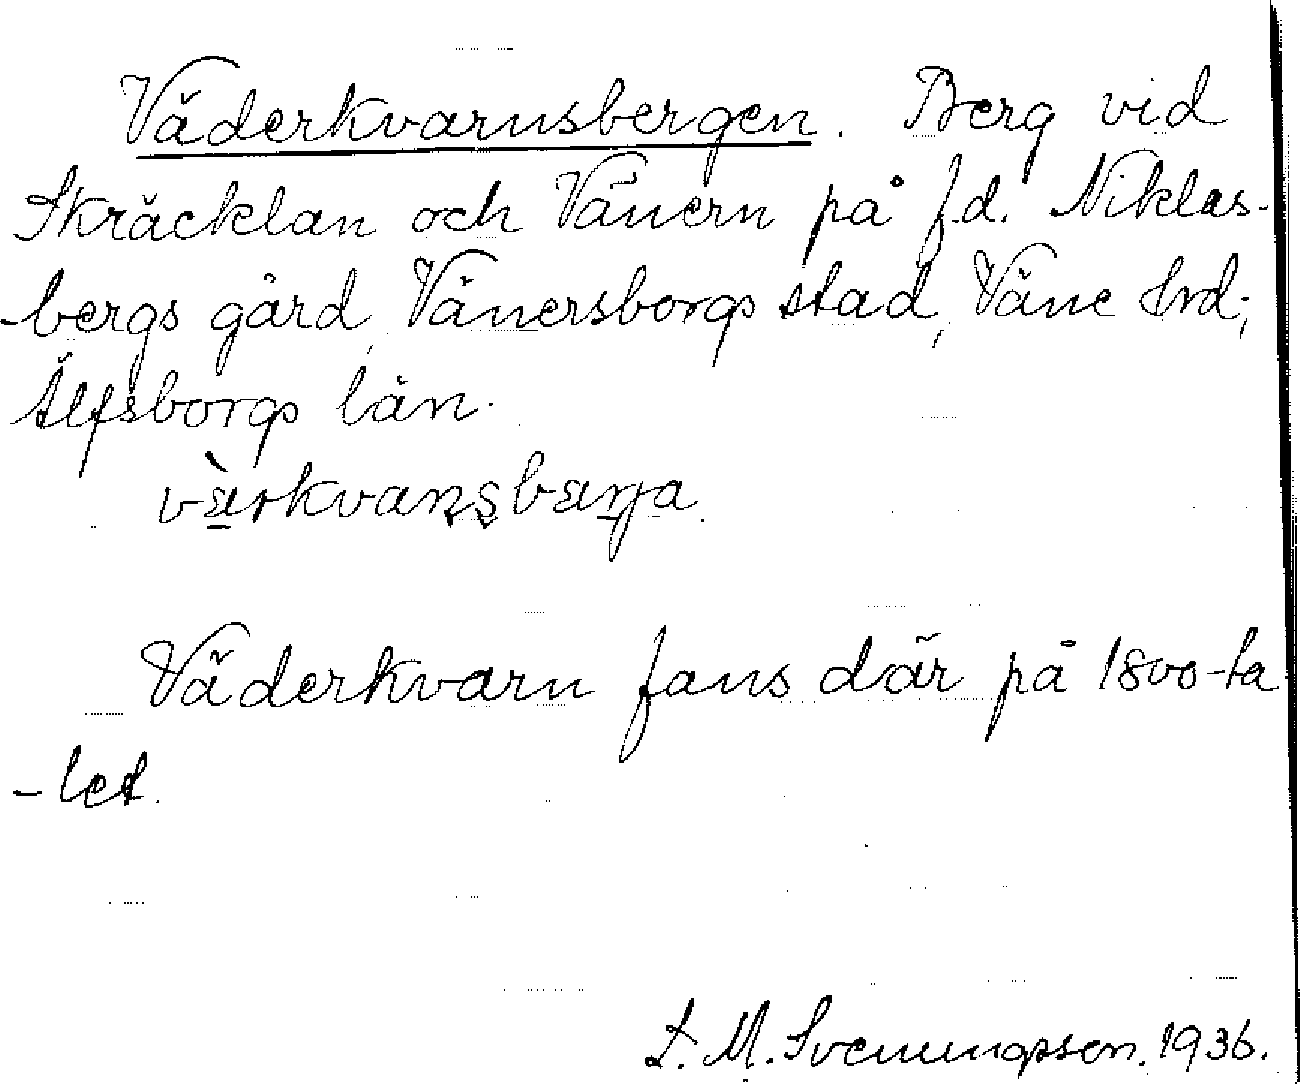 Väderkvarnsbergen. Berg vid
Skräcklan och Vänern på f.d. Niklas-
-bergs gård, Vänersborgs stad, Väne hrd;
Älfsborgs län.
vàrkvanṣbærja.
Väderkvarn fans där på 1800-ta
-let.
L. M. Svenungsson. 1936.